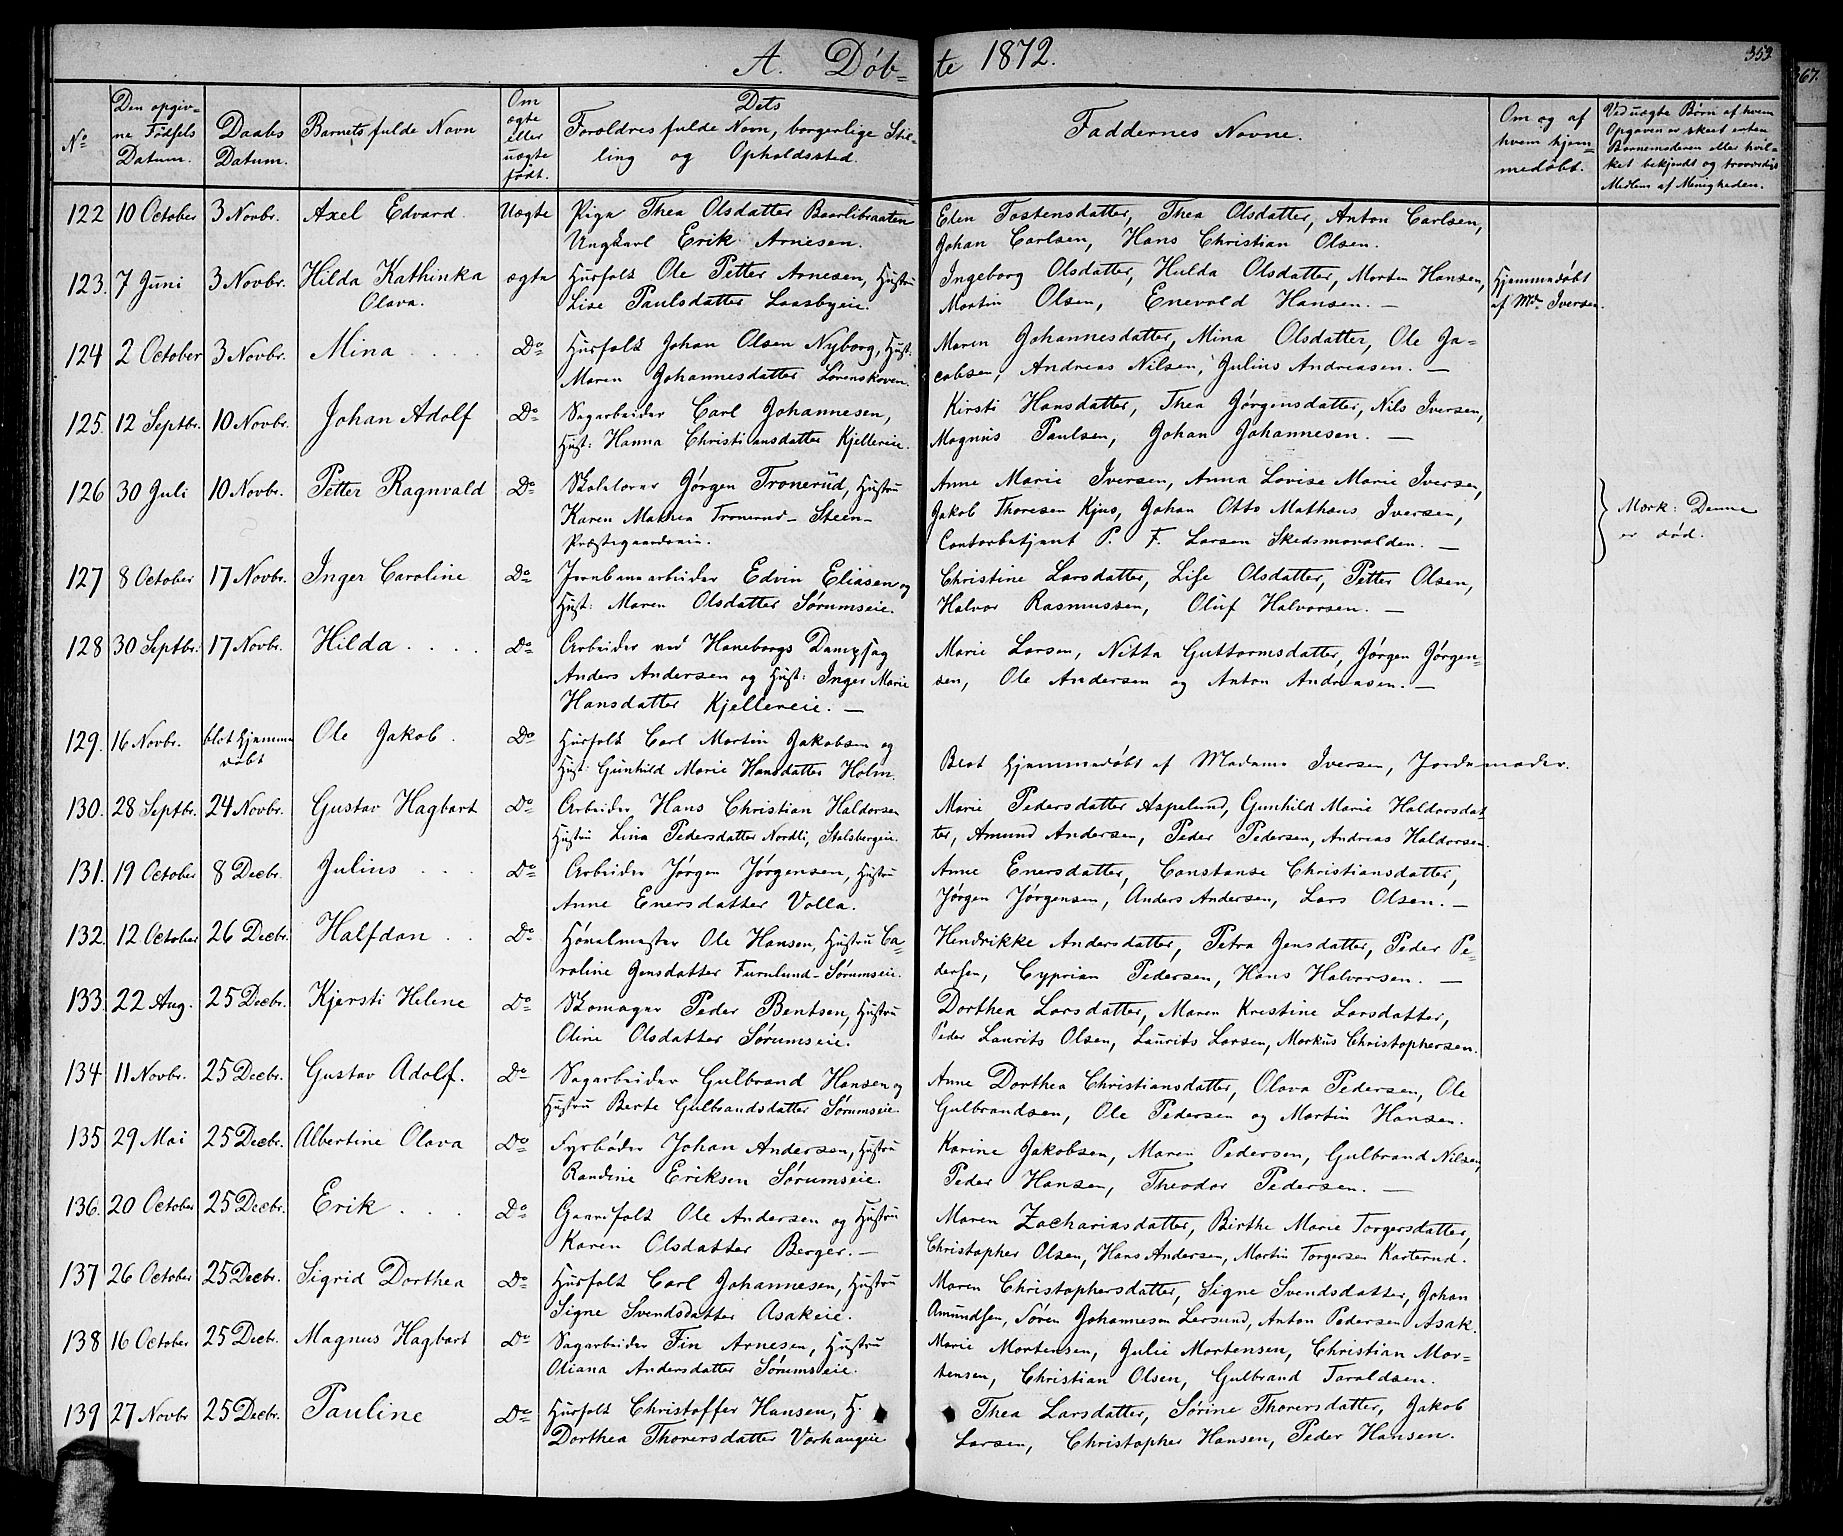 A. Døb-te 1872.
353
367.
No
Den opgiv-
ne Fødsels
Datum.
Daabs
Datum.
Barnets fulde Navn
Om
ægte
eller
uægte
født.
Dets
Forældres fulde Navn, borgerlige Stil-
ling og Opholdssted.
Faddernes Navne.
Om og af
hvem hjem-
medøbt.
Ved uægte Børn af hvem
Opgaven er skeet enten
Barnemoderen eller hvil-
ket bekjendt og troværdig
Medlem af Menigheden.
122 10 October 3 Novbr. Axel Edvard. Uægte Pige Thea Olsdatter Baarlibraaten Eden Tostensdatter, Thea Olsdatter, Anton Carlsen,
Ungkarl Erik Arnesen. Johan Carlsen, Hans Christian Olsen.
123. 7 Juni 3 Novbr. Hilda Kathinka ægte Husfolk Ole Petter Arnesen, Hustru Ingeborg Olsdatter, Hulda Olsdatter, Morten Hansen, Hjemmedøbt
Olava. Lise Paulsdatter Laasbyeie. Martin Olsen, Enevold Hansen. — af Mdm Iversen.
124 2 October 3 Novbr. Mina Do Husfolk Johan Olsen Nyborg, Hust: Maren Johannesdatter, Mina Olsdatter, Ole Ja-
Maren Johannesdatter Lørenskoven. cobsen, Andreas Nilsen, Julius Andreasen. —
125. 12 Septbr. 10 Novbr. Johan Adolf Do Sagarbeider Carl Johannesen, Kirsti Hansdatter, Thea Jørgensdatter, Nils Iversen,
Hust: Hanna Christiansdatter Kjellereie. Magnus Paulsen, Johan Johannesen. —
126 30 Juli 10 Novbr. Petter Ragnvald Do Skolelærer Jørgen Tronerud, Hustru Anne Marie Iversen, Anna Lovise Marie Iversen,
Karen Mathea Tronerud - Steen- Jakob Thoresen Kjus, Johan Otto Mathæus Iversen, Mærk: Denne
Præstegaardseie. Contorbetjent P. F. Larsen Skedsmovolden. — er død.
127 8 October 17 Novbr. Inger Caroline Do Jernbanearbeider Edvin Eliasen og Christine Larsdatter, Lise Olsdatter, Petter Olsen,
Hust: Maren Olsdatter Sørumseie. Halvor Rasmussen, Oluf Halvorsen. —
128 30 Septbr. 17 Novbr. Hilda Do Arbeider ved Haneborgs Dampsag Marie Larsen, Nitta Guttormsdatter, Jørgen Jørgen-
Anders Andersen og Hust: Inger Marie sen, Ole Andersen og Anton Andreasen. —
Hansdatter Kjellereie. —
129. 16 Novbr. blot hjemme Ole Jakob. Do Husfolk Carl Martin Jakobsen og
døbt Hust: Gunhild Marie Hansdatter Holm. Blot hjemmedøbt af Madame Iversen, Jordemoder.
130. 28 Septbr. 24 Novbr. Gustav Hagbart Do Arbeider Hans Christian Haldorsen Marie Pedersdatter Aspelund, Gunhild Marie Haldorsdat
Hustru Lina Pedersdatter Nordli, Stalsbergeie. ter, Amund Andersen, Peder Pedersen, Andreas Haldorsen.
131. 19 October 8 Decbr. Julius Do Arbeider Jørgen Jørgensen, Hustru Anne Enersdatter, Constanse Christiansdatter,
Anne Enersdatter Volla. Jørgen Jørgensen, Anders Andersen, Lars Olsen. —
132. 12 October 26 Decbr. Halfdan Do Hønelmester Ole Hansen, Hustru Ca- Hendrikke Andersdatter, Petra Jensdatter, Peder Pe-
roline Jensdatter Furulund - Sørumseie. dersen, Cyprian Pedersen, Hans Halvorsen. —
133. 22 Aug. 25 Decbr. Kjersti Helene Do Skomager Peder Bentsen, Hustru Dorthea Larsdatter, Maren Kristine Larsdatter,
Oline Olsdatter Sørumseie. Peder Laurits Olsen, Laurits Larsen, Markus Christophersen.
134 11 Novbr. 25 Decbr. Gustav Adolf. Do Sagarbeider Gulbrand Hansen og Anne Dorthea Christiansdatter, Olava Pedersen, Ole
Hustru Berte Gulbrandsdatter Sørumseie. Gulbrandsen, Ole Pedersen og Martin Hansen.
135 29 Mai 25 Decbr. Albertine Olava Do Fyrbøder Johan Andersen, Hustru Karine Jakobsen, Maren Pedersen, Gulbrand Nilsen,
Randine Eriksen Sørumseie. Peder Hansen, Theodor Pedersen. —
136. 20 October 25 Decbr. Erik Do Gaardfolk Ole Andersen og Hustru Maren Zachariasdatter, Birthe Marie Torgersdatter,
Karen Olsdatter Berger. — Christopher Olsen, Hans Andersen, Martin Torgersen Karterud.
137 26 October 25 Decbr. Sigrid Dorthea Do Husfolk Carl Johannesen, Hustru Maren Christophersdatter, Signe Svendsdatter, Johan
Signe Svendsdatter Asakeie. Amundsen, Søren Johannesen Lersund, Anton Pedersen Asak.
138 16 October 25 Decbr. Magnus Hagbart Do Sagarbeider Fin Arnesen, Hustru Marie Mortensen, Julie Mortensen, Christian Mor-
Oliana Andersdatter Sørumseie. tensen, Christian Olsen, Gulbrand Taraldsen.
139 27 Novbr 25 Decbr. Pauline Do Husfolk Christoffer Hansen, H. Thea Larsdatter, Sørine Thorersdatter, Jakob
Dorthea Thorersdatter Vorhaugeie Larsen, Christopher Hansen, Peder Hansen.